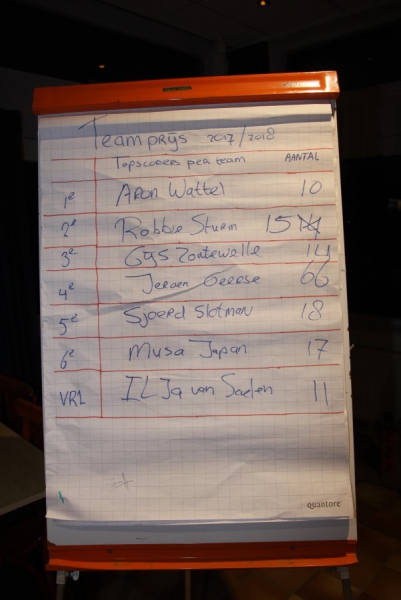 Teamprijs 2017/2018
Topscorers per team AANTAL
1e Aron Wattel 10
2e Robbie Sturm 15
3e Gijs Zontewelle 14
4e Jeroen Geerse 66
5e Sjoerd Slotman 18
6e Musa Japan 17
VR1 ILJa van Saelen 11
quantore